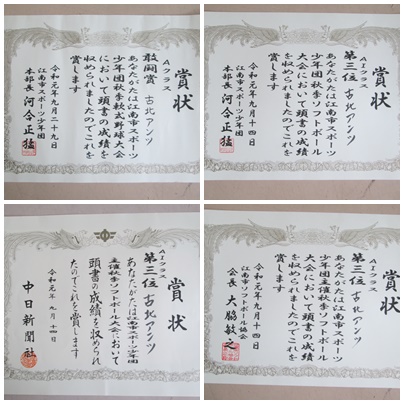 賞状
AIクラス
敢闘賞 古北アンツ
あなたがたは江南市スポーツ
少年団秋季軟式野球大会
において頭書の成績を
収められましたのでこれを
賞します
令和元年九月二十九日
江南市スポーツ少年団
本部長 河合正猛
賞状
AIクラス
第三位 古北アンツ
あなたがたは江南市スポーツ
少年団秋季ソフトボール
大会において頭書の成績
を収められましたのでこれを
賞します
令和元年九月十四日
江南市スポーツ少年団
本部長 河合正猛
賞状
AIクラス
第三位 古北アンツ
あなたがたは江南市スポーツ少年団
主催秋季ソフトボール大会において
頭書の成績を収められ
たのでこれを賞します
令和元年九月十四日
中日新聞社
賞状
AIクラス
第三位 古北アンツ
あなたがたは江南市スポーツ
少年団主催秋季ソフトボール
大会において頭書の成績
を収められましたのでこれを
賞します
令和元年九月十四日
江南市ソフトボール協会
会長 大脇敏之